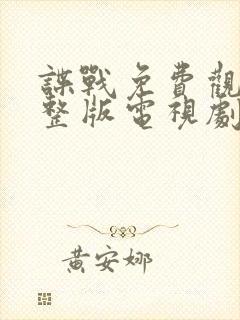 諜戰免費觀
整版電視劇
黃安娜